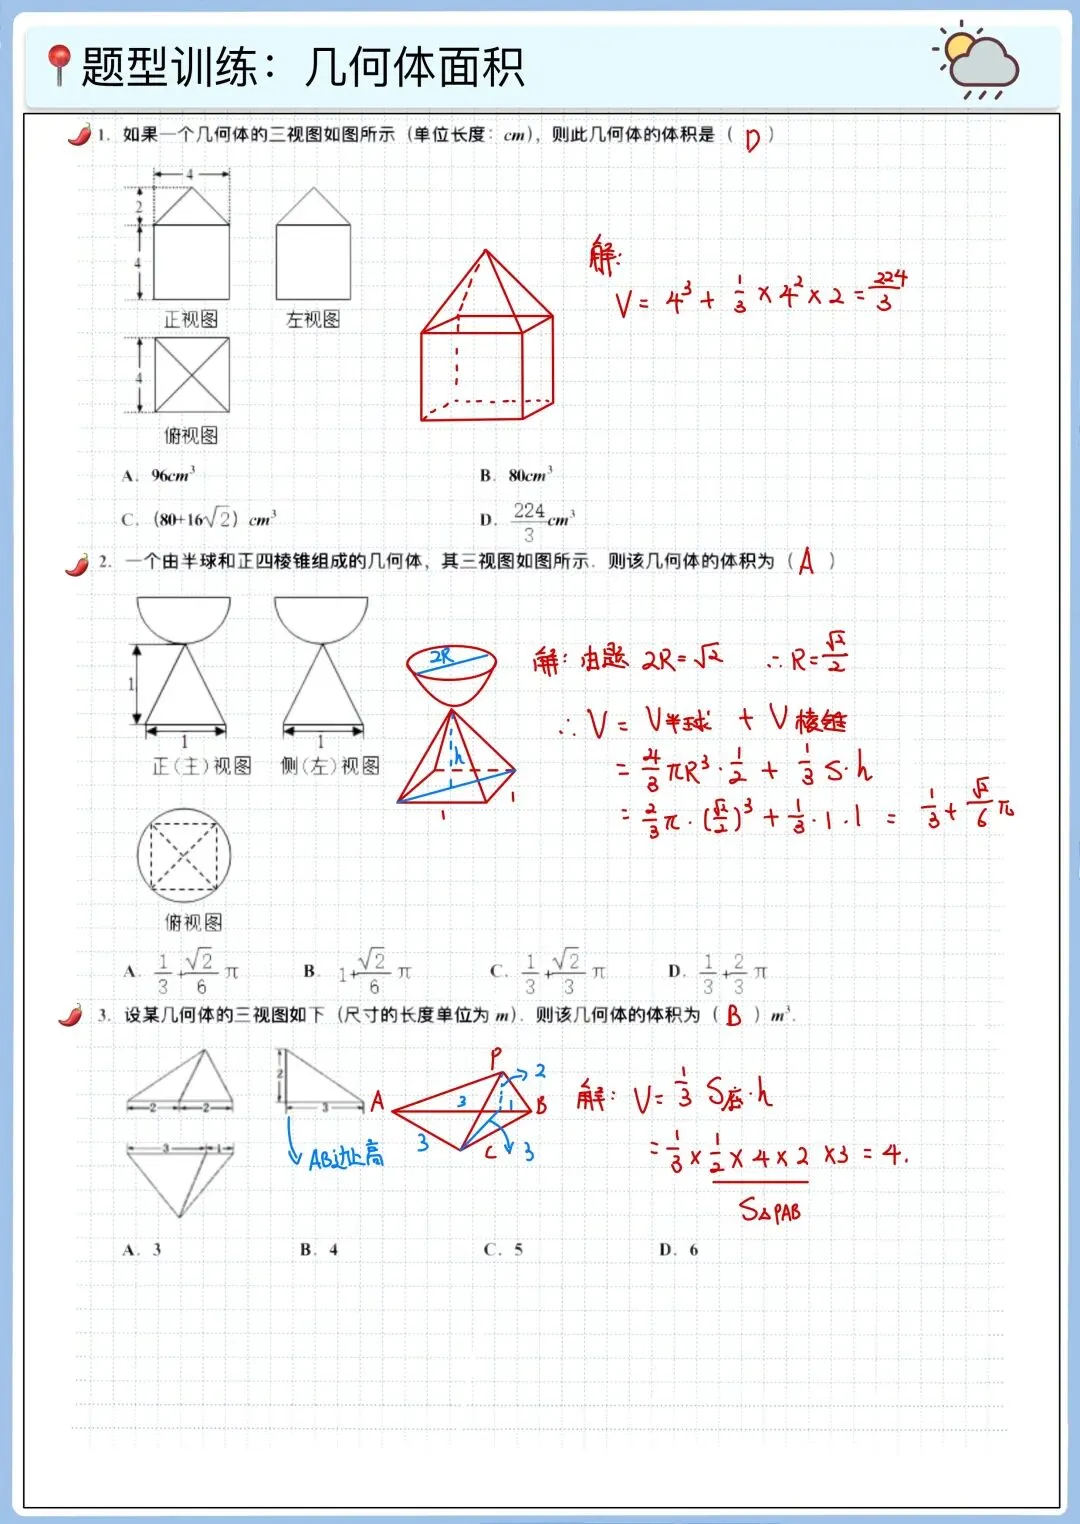 题型训练：几何体面积
1. 如果一个几何体的三视图如图所示（单位长度：cm），则此几何体的体积是（ D ）
4
2
4
正视图 左视图
4
俯视图
解：
V = 4³ + 1/3 × 4² × 2 = 224/3
A. 96cm³ B. 80cm³
C.（80+16√2）cm³ D. 224/3 cm³
2. 一个由半球和正四棱锥组成的几何体，其三视图如图所示．则该几何体的体积为（ A ）
1
1 1
正(主)视图 侧(左)视图
俯视图
2R
h
1 1
解：由题 2R=√2 ∴R=√2/2
∴ V = V半球 + V棱锥
= 4/3 πR³·1/2 + 1/3 S·h
= 2/3 π·(√2/2)³ + 1/3·1·1 = 1/3 + √2/6 π
A. 1/3+√2/6 π B. 1+√2/6 π C. 1/3+√2/3 π D. 1/3+2/3 π
3. 设某几何体的三视图如下（尺寸的长度单位为 m）．则该几何体的体积为（ B ）m³.
2 2
2
3
3 1
AB边上高
P
2
A 3 1 B
3 C 3
解：V=1/3 S底·h
=1/3 × 1/2 × 4 × 2 × 3 = 4.
S△PAB
A. 3 B. 4 C. 5 D. 6